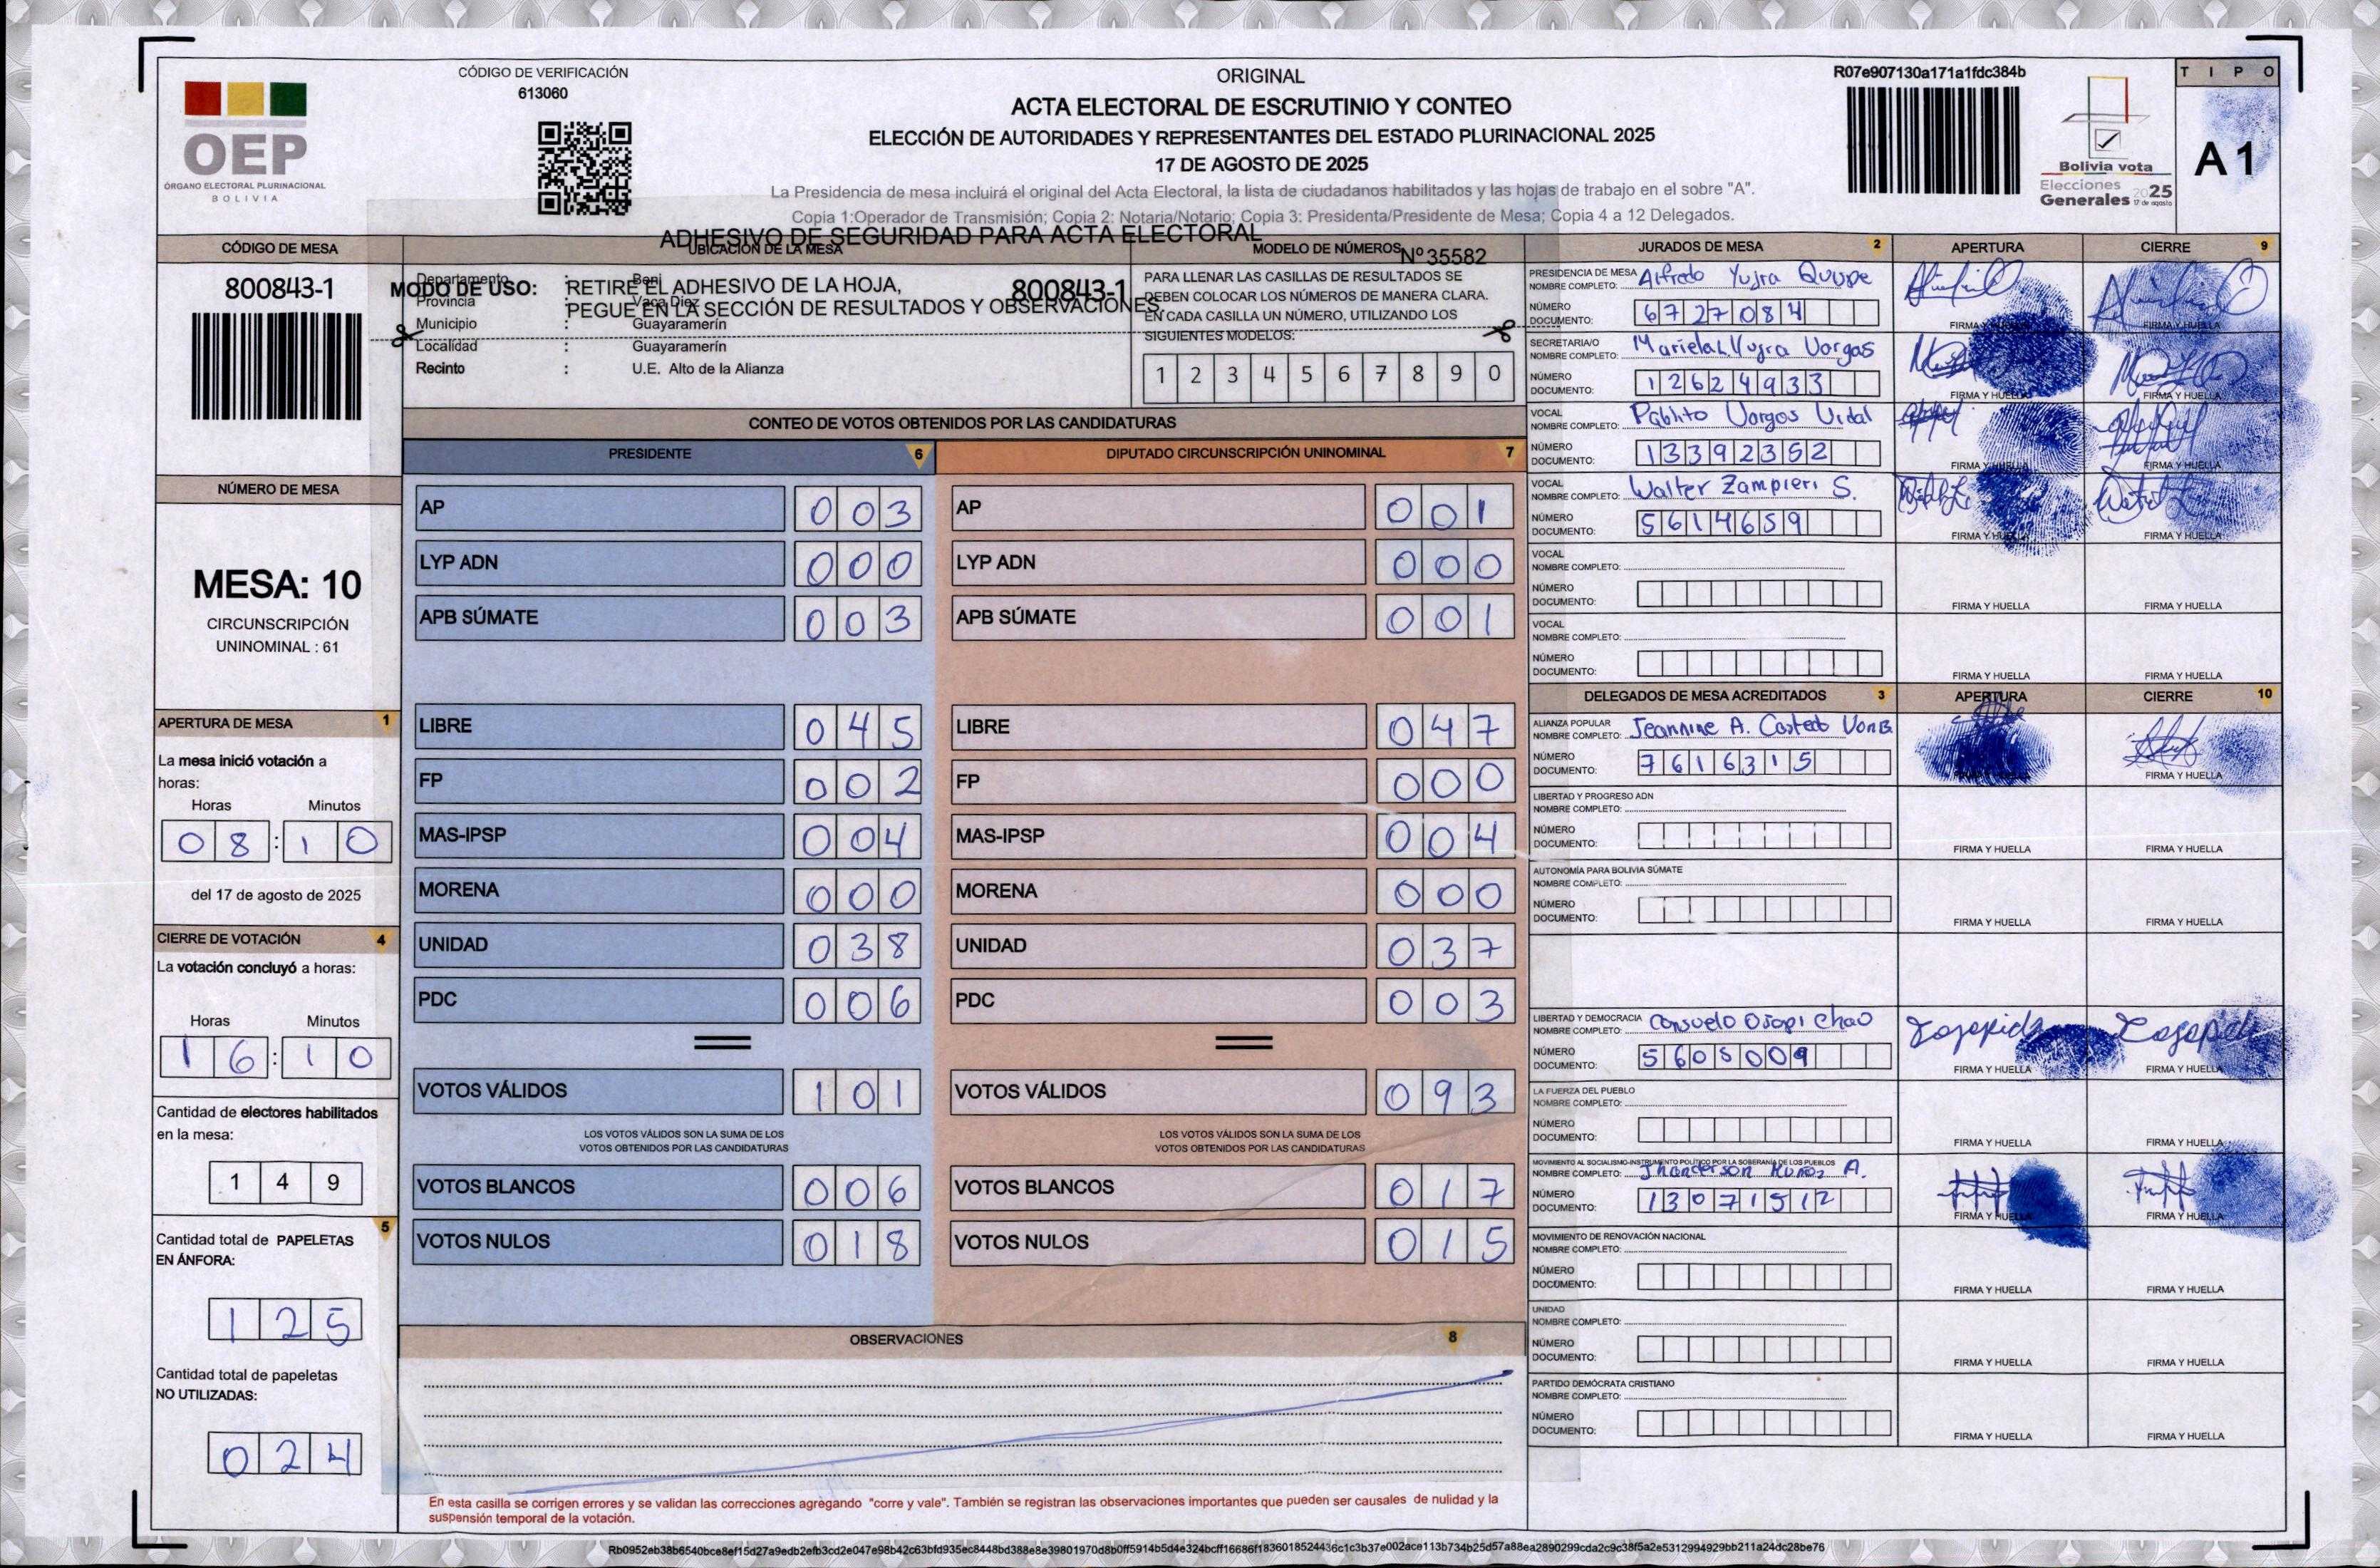 CÓDIGO DE VERIFICACIÓN
613060
OEP
ÓRGANO ELECTORAL PLURINACIONAL
BOLIVIA
ORIGINAL
ACTA ELECTORAL DE ESCRUTINIO Y CONTEO
ELECCIÓN DE AUTORIDADES Y REPRESENTANTES DEL ESTADO PLURINACIONAL 2025
17 DE AGOSTO DE 2025
La Presidencia de mesa incluirá el original del Acta Electoral, la lista de ciudadanos habilitados y las hojas de trabajo en el sobre "A".
Copia 1:Operador de Transmisión; Copia 2: Notaria/Notario; Copia 3: Presidenta/Presidente de Mesa; Copia 4 a 12 Delegados.
R07e907130a171a1fdc384b
Bolivia vota
Elecciones
Generales 2025
17 de agosto
TIPO
A1
ADHESIVO DE SEGURIDAD PARA ACTA ELECTORAL
Nº 35582
MODO DE USO: RETIRE EL ADHESIVO DE LA HOJA,
PEGUE EN LA SECCIÓN DE RESULTADOS Y OBSERVACIONES
CÓDIGO DE MESA
800843-1
UBICACIÓN DE LA MESA
Departamento : Beni
Provincia : Vaca Diez
Municipio : Guayaramerín
Localidad : Guayaramerín
Recinto : U.E. Alto de la Alianza
800843-1
MODELO DE NÚMEROS
PARA LLENAR LAS CASILLAS DE RESULTADOS SE
DEBEN COLOCAR LOS NÚMEROS DE MANERA CLARA.
EN CADA CASILLA UN NÚMERO, UTILIZANDO LOS
SIGUIENTES MODELOS:
1 2 3 4 5 6 7 8 9 0
NÚMERO DE MESA
MESA: 10
CIRCUNSCRIPCIÓN
UNINOMINAL : 61
APERTURA DE MESA 1
La mesa inició votación a
horas:
Horas Minutos
08:10
del 17 de agosto de 2025
CIERRE DE VOTACIÓN 4
La votación concluyó a horas:
Horas Minutos
16:10
Cantidad de electores habilitados
en la mesa:
149
5
Cantidad total de PAPELETAS
EN ÁNFORA:
125
Cantidad total de papeletas
NO UTILIZADAS:
024
CONTEO DE VOTOS OBTENIDOS POR LAS CANDIDATURAS
PRESIDENTE 6
AP 003
LYP ADN 000
APB SÚMATE 003
LIBRE 045
FP 002
MAS-IPSP 004
MORENA 000
UNIDAD 038
PDC 006
VOTOS VÁLIDOS 101
LOS VOTOS VÁLIDOS SON LA SUMA DE LOS
VOTOS OBTENIDOS POR LAS CANDIDATURAS
VOTOS BLANCOS 006
VOTOS NULOS 018
DIPUTADO CIRCUNSCRIPCIÓN UNINOMINAL 7
AP 001
LYP ADN 000
APB SÚMATE 001
LIBRE 047
FP 000
MAS-IPSP 004
MORENA 000
UNIDAD 037
PDC 003
VOTOS VÁLIDOS 093
LOS VOTOS VÁLIDOS SON LA SUMA DE LOS
VOTOS OBTENIDOS POR LAS CANDIDATURAS
VOTOS BLANCOS 017
VOTOS NULOS 015
OBSERVACIONES 8
En esta casilla se corrigen errores y se validan las correcciones agregando "corre y vale". También se registran las observaciones importantes que pueden ser causales de nulidad y la
suspensión temporal de la votación.
JURADOS DE MESA 2 APERTURA CIERRE 9
PRESIDENCIA DE MESA
NOMBRE COMPLETO: Alfredo Yujra Quispe
NÚMERO
DOCUMENTO: 6727084
FIRMA Y HUELLA FIRMA Y HUELLA
SECRETARIA/O
NOMBRE COMPLETO: Mariela L Yujra Vargas
NÚMERO
DOCUMENTO: 12624933
FIRMA Y HUELLA FIRMA Y HUELLA
VOCAL
NOMBRE COMPLETO: Pablito Vargas Vidal
NÚMERO
DOCUMENTO: 13392352
FIRMA Y HUELLA FIRMA Y HUELLA
VOCAL
NOMBRE COMPLETO: Walter Zampieri S.
NÚMERO
DOCUMENTO: 5614659
FIRMA Y HUELLA FIRMA Y HUELLA
VOCAL
NOMBRE COMPLETO:
NÚMERO
DOCUMENTO:
FIRMA Y HUELLA FIRMA Y HUELLA
VOCAL
NOMBRE COMPLETO:
NÚMERO
DOCUMENTO:
FIRMA Y HUELLA FIRMA Y HUELLA
DELEGADOS DE MESA ACREDITADOS 3 APERTURA CIERRE 10
ALIANZA POPULAR
NOMBRE COMPLETO: Jeannine A. Castedo
NÚMERO
DOCUMENTO: 7616315
FIRMA Y HUELLA
LIBERTAD Y PROGRESO ADN
NOMBRE COMPLETO:
NÚMERO
DOCUMENTO:
FIRMA Y HUELLA FIRMA Y HUELLA
AUTONOMÍA PARA BOLIVIA SÚMATE
NOMBRE COMPLETO:
NÚMERO
DOCUMENTO:
FIRMA Y HUELLA FIRMA Y HUELLA
LIBERTAD Y DEMOCRACIA
NOMBRE COMPLETO: Consuelo Ojopi Chao
NÚMERO
DOCUMENTO: 5605009
FIRMA Y HUELLA FIRMA Y HUELLA
LA FUERZA DEL PUEBLO
NOMBRE COMPLETO:
NÚMERO
DOCUMENTO:
FIRMA Y HUELLA FIRMA Y HUELLA
MOVIMIENTO AL SOCIALISMO-INSTRUMENTO POLÍTICO POR LA SOBERANÍA DE LOS PUEBLOS
NOMBRE COMPLETO: Jhanderson Muñoz A.
NÚMERO
DOCUMENTO: 13071512
FIRMA Y HUELLA FIRMA Y HUELLA
MOVIMIENTO DE RENOVACIÓN NACIONAL
NOMBRE COMPLETO:
NÚMERO
DOCUMENTO:
FIRMA Y HUELLA FIRMA Y HUELLA
UNIDAD
NOMBRE COMPLETO:
NÚMERO
DOCUMENTO:
FIRMA Y HUELLA FIRMA Y HUELLA
PARTIDO DEMÓCRATA CRISTIANO
NOMBRE COMPLETO:
NÚMERO
DOCUMENTO:
FIRMA Y HUELLA FIRMA Y HUELLA